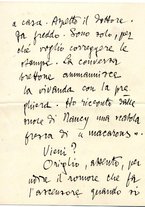 a casa. Aspetto il dottore.
Fa freddo. Sono solo, per
ché voglio correggere le
stampe. La conversa
trettone ammannisce
la vivanda con la pre
ghiera. Ho ricevuto dalle
suole di Nancy una scatola
fresca di macarons.
Vieni?
Origlio, attento, per
udire il romore che fa
l'ascensore quando si